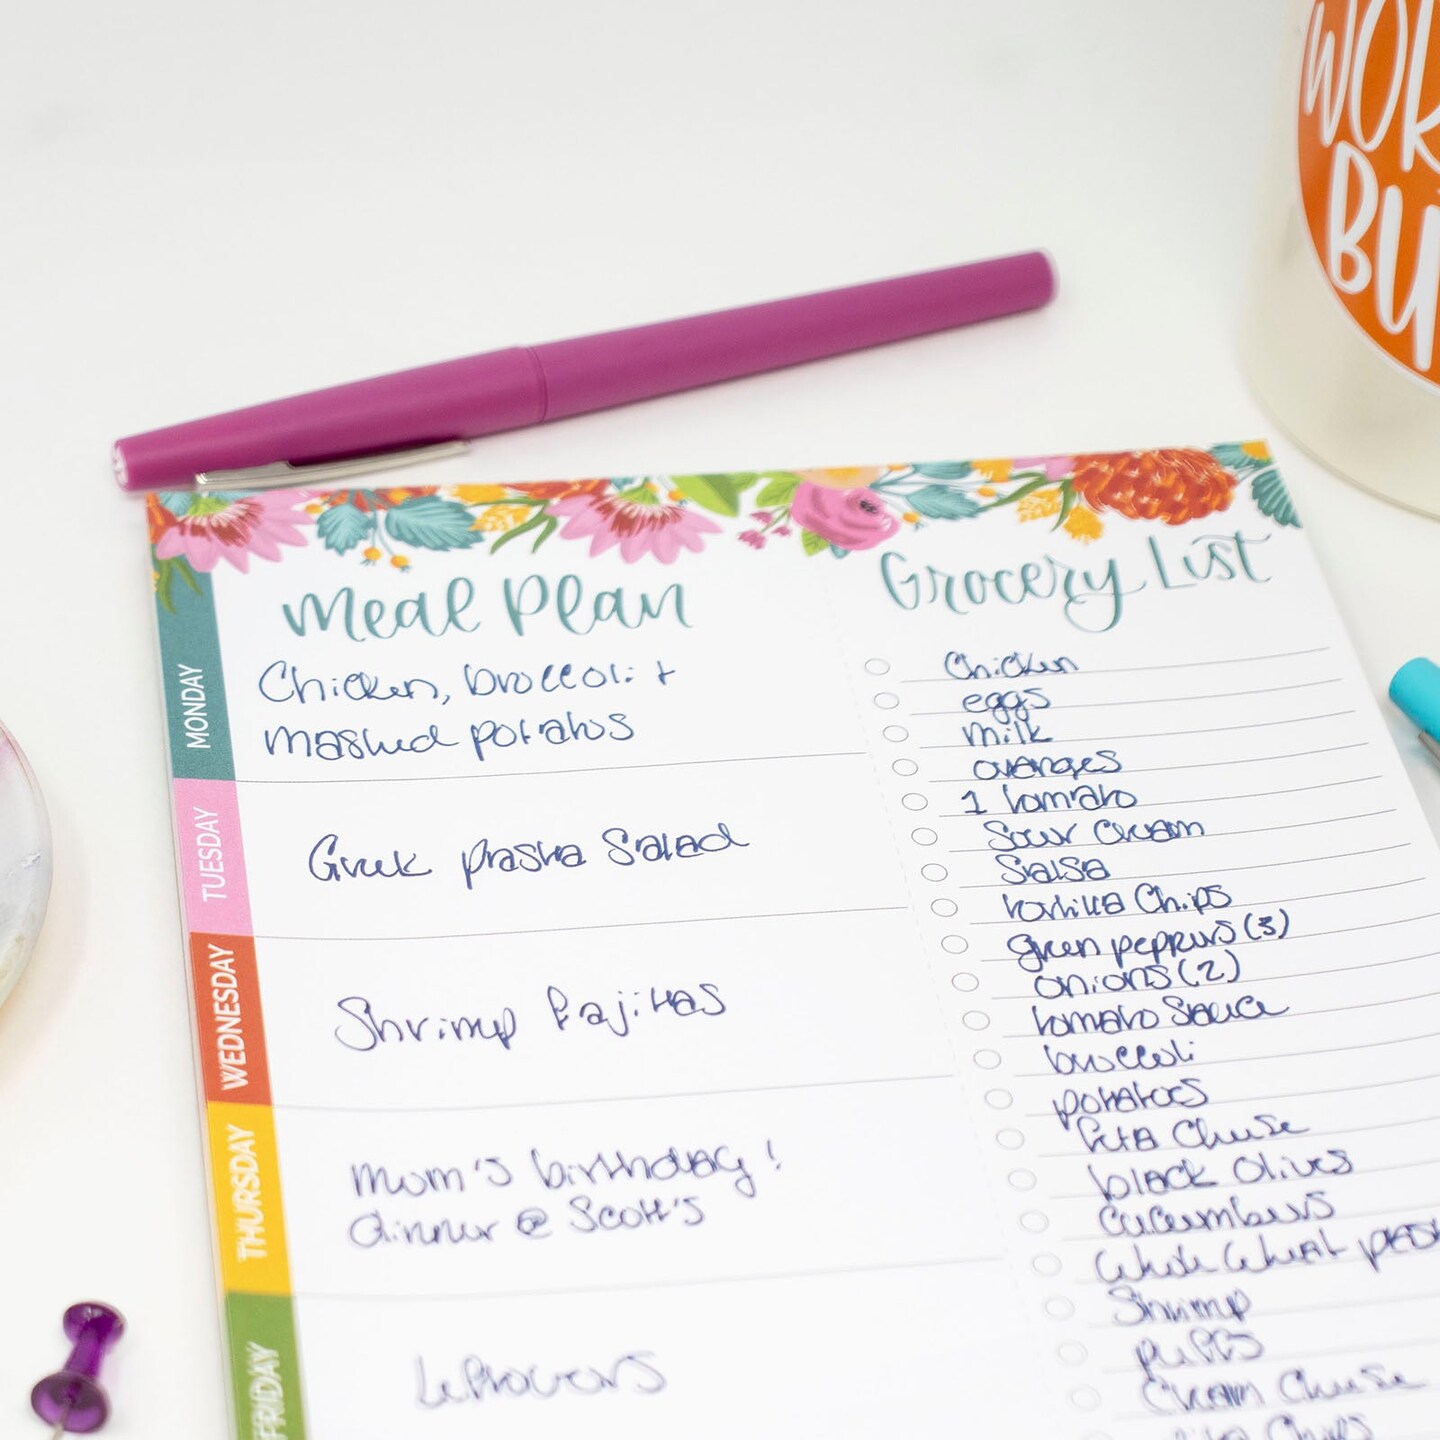 WOR
BU
Meal Plan
MONDAY
Chicken, broccoli +
mashed potatoes
TUESDAY
Greek pasta Salad
WEDNESDAY
Shrimp fajitas
THURSDAY
Mom's birthday!
dinner @ Scott's
FRIDAY
leftovers
Grocery List
Chicken
eggs
milk
oranges
1 tomato
Sour Cream
Salsa
tortilla Chips
green peppers (3)
onions (2)
tomato Sauce
broccoli
potatoes
feta Cheese
black Olives
Cucumbers
Whole Wheat pas
Shrimp
puffs
Cream Cheese
Chips